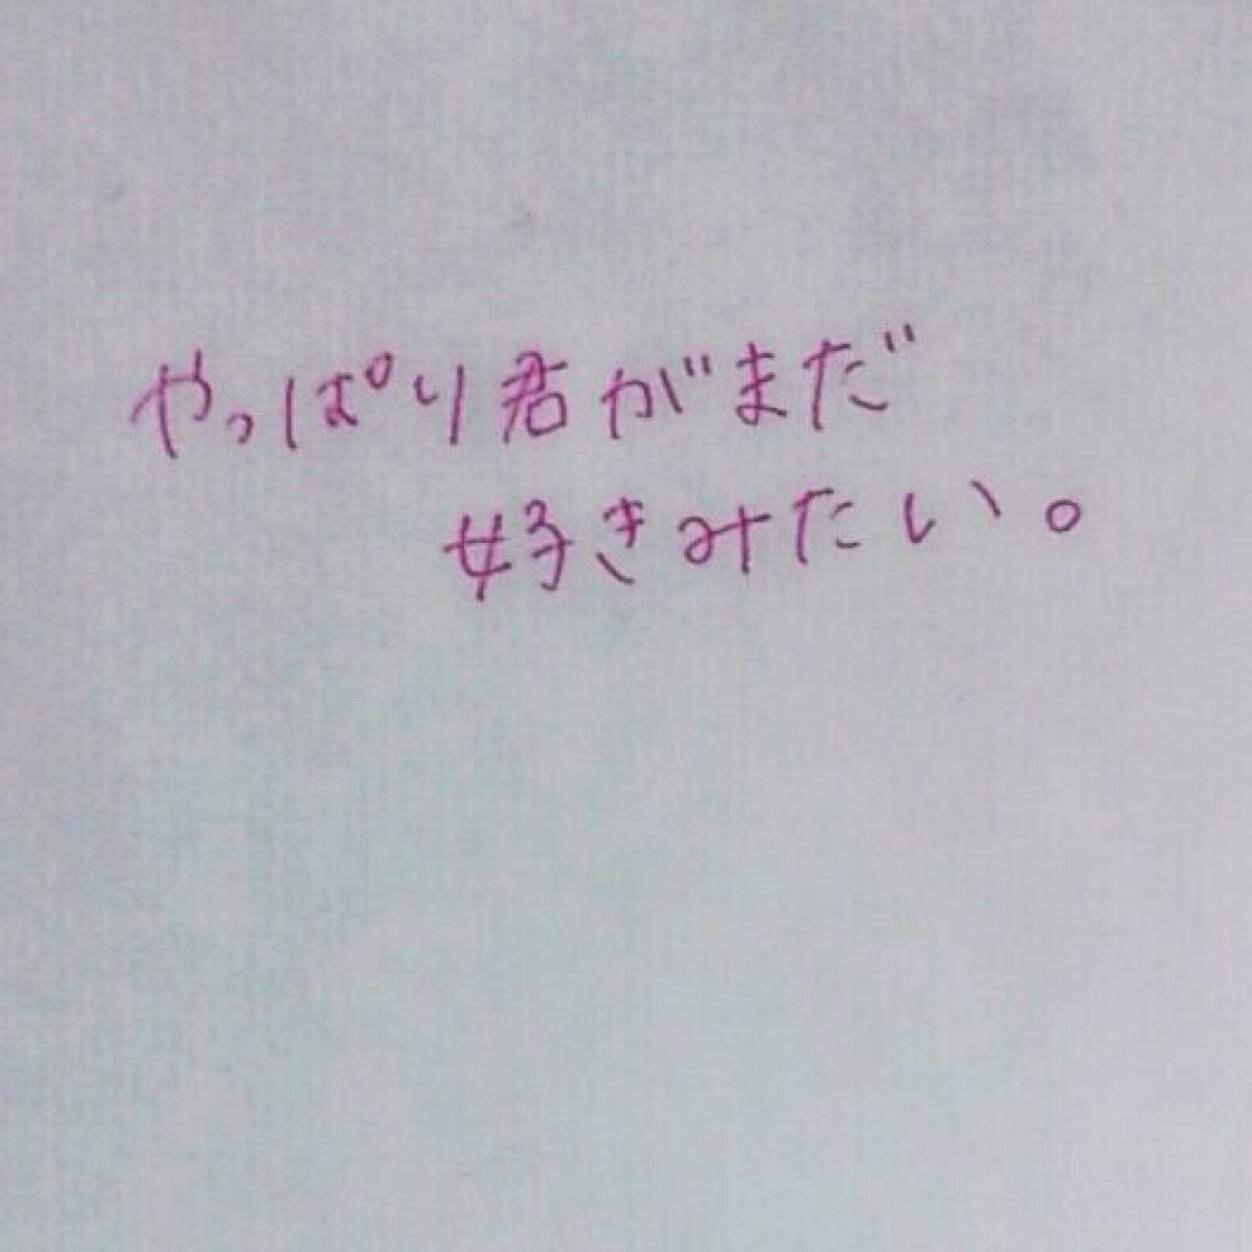 やっぱり君がまだ
好きみたい。